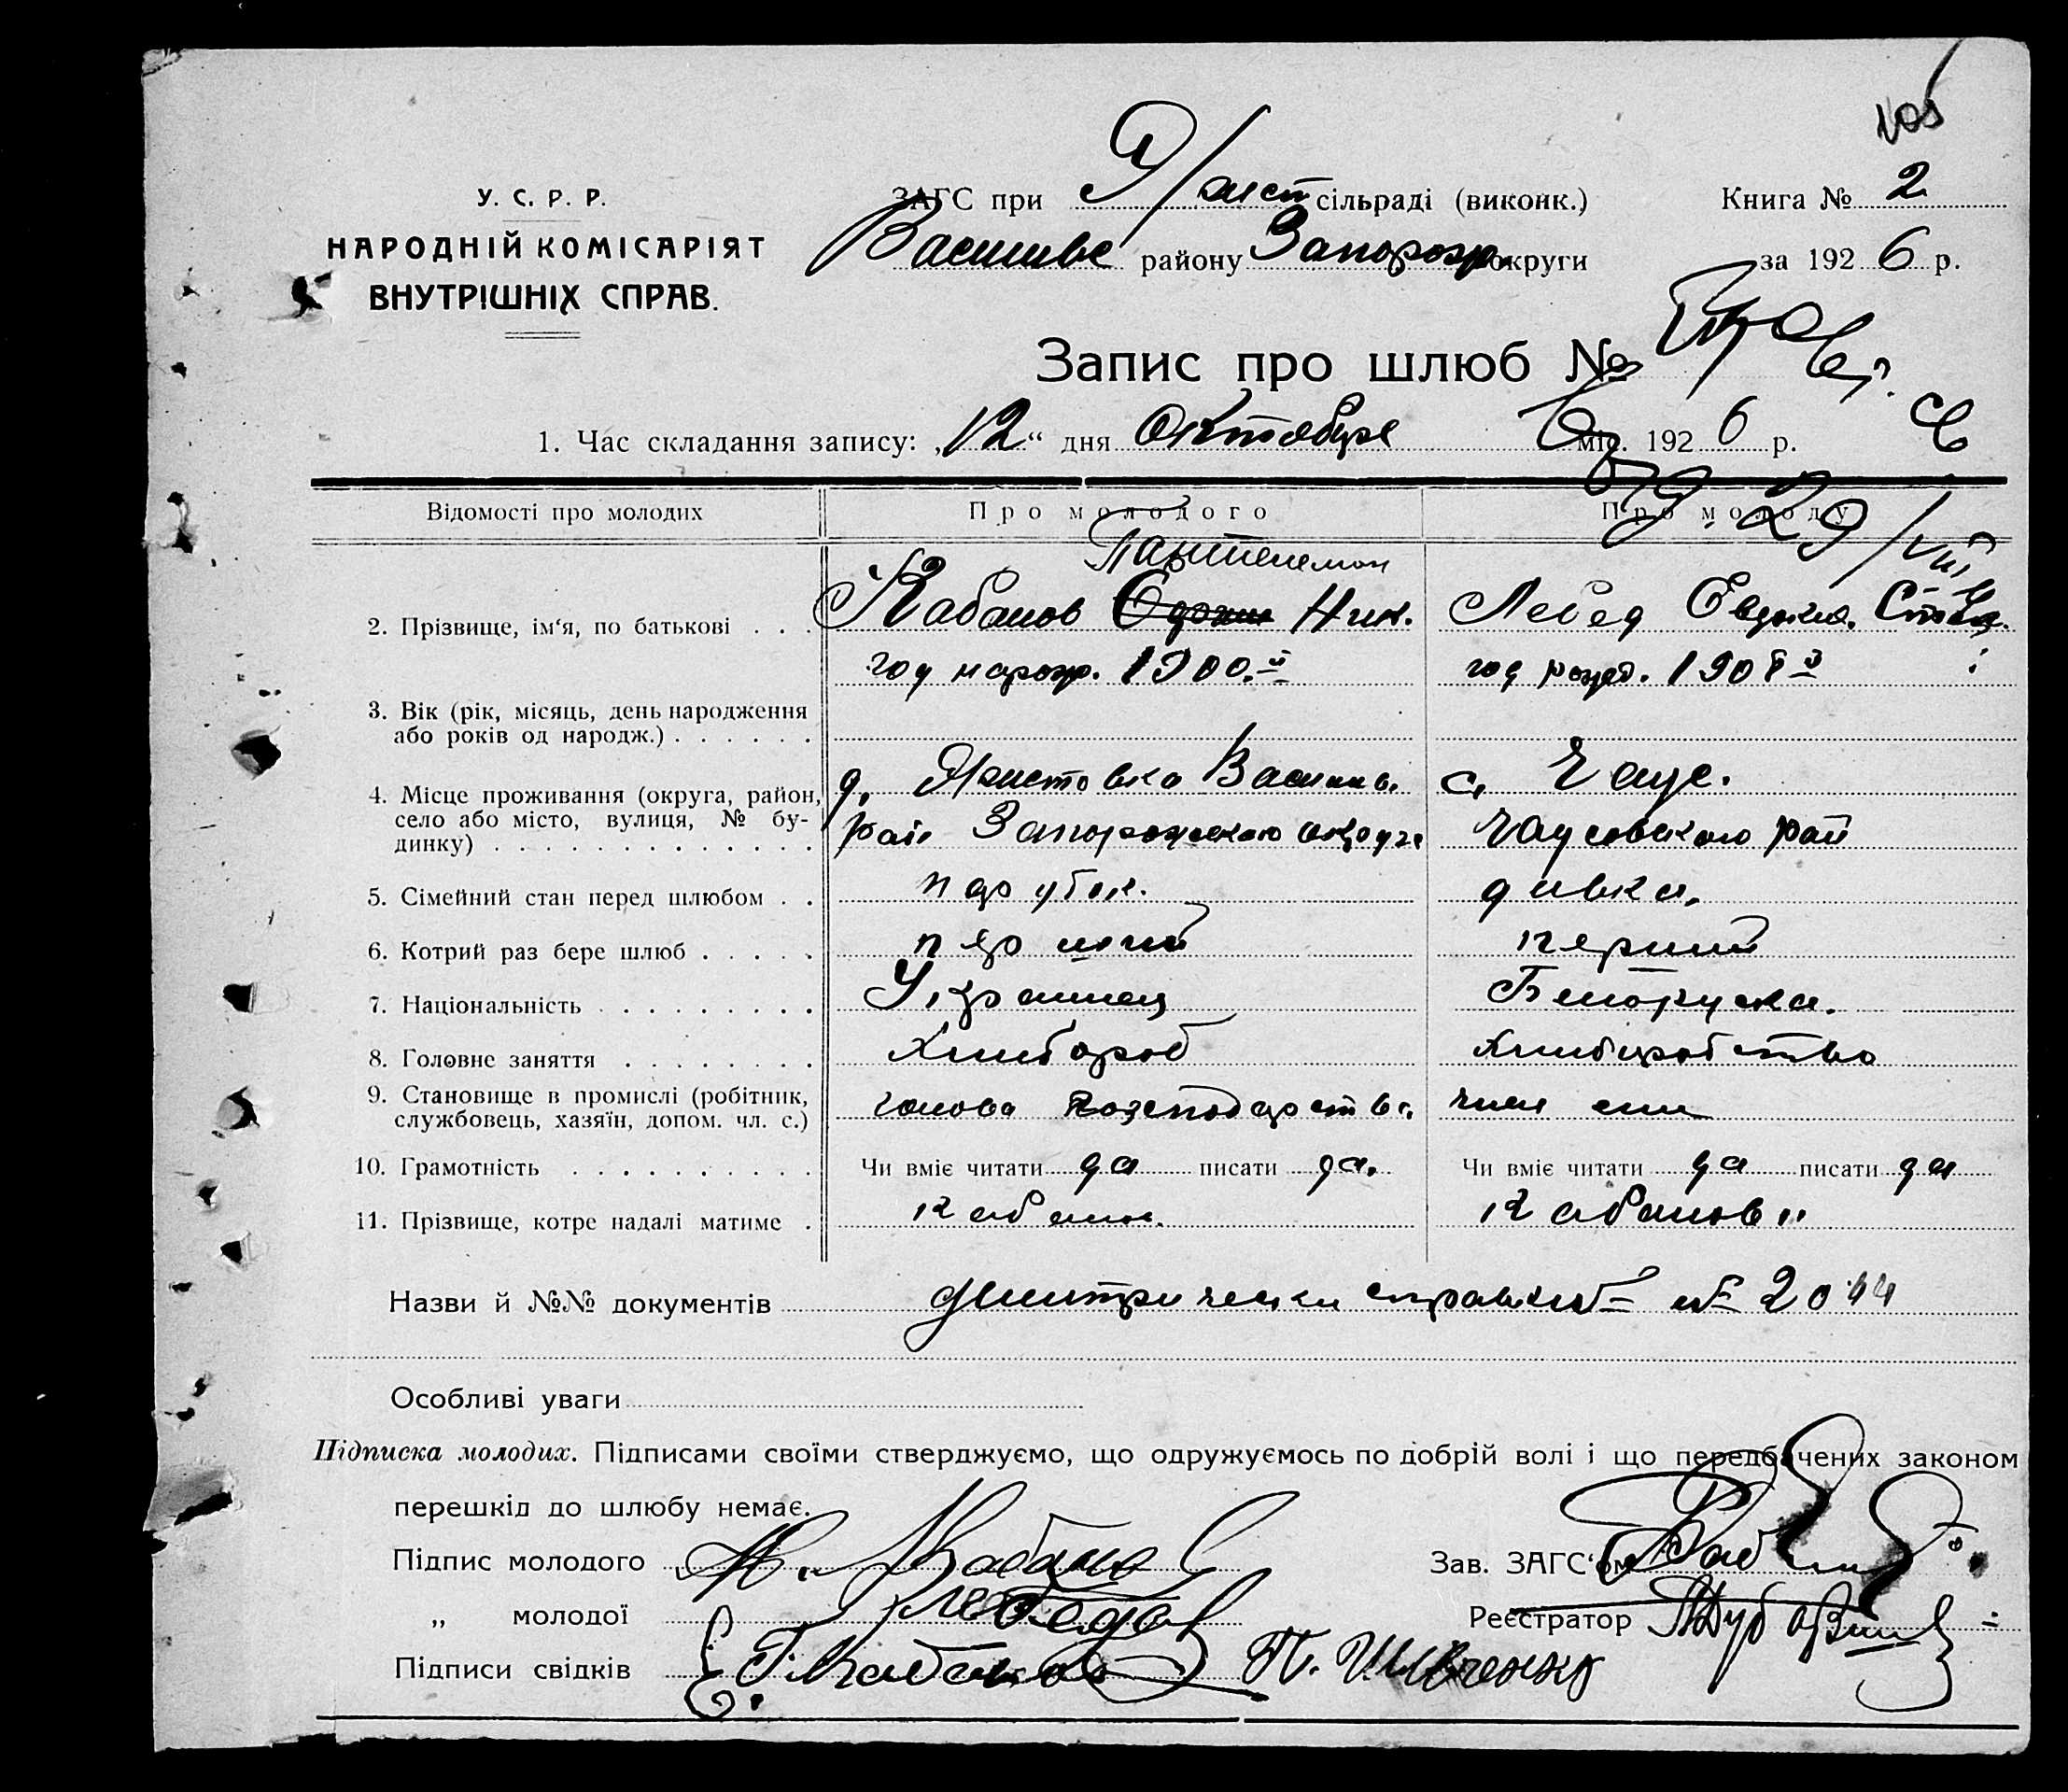 105
У. С. Р. Р.
НАРОДНІЙ КОМІСАРІЯТ
ВНУТРІШНІХ СПРАВ.
ЗАГС при сільраді (виконк.) Книга № 2
Василівс району Запорож. округи за 1926 р.
Запис про шлюб №
1. Час складання запису: „12“ дня Октобря міс. 1926 р.
Відомості про молодих Про молодого Про молоду
Пантелемон
2. Прізвище, ім‘я, по батькові . . . Кабанов Ник. Лебед Евдокия. Степ.
год нарож. 1900.й год рожд. 1908 й
3. Вік (рік, місяць, день народження
або років од народж.) . . . . . .
4. Місце проживання (округа, район, село або місто, вулиця, № бу-
динку) . . . . . . . . . . . . .
д. Васили. с. Чаус.
рай Запорожского округи Чаусовского рай
5. Сімейний стан перед шлюбом . . парубок. дивка.
6. Котрий раз бере шлюб . . . . . перший перший
7. Національність . . . . . . . . . Украинец Белоруска.
8. Головне заняття . . . . . . . . Хлибороб хлиборобство
9. Становище в промислі (робітник,
службовець, хазяїн, допом. чл. с.) голова господарства член сим
10. Грамотність . . . . . . . . . . Чи вміє читати да писати да. Чи вміє читати да писати да
11. Прізвище, котре надалі матиме . Кабанов. Кабанов
Назви й №№ документів справки № 2044
Особливі уваги
Підписка молодих. Підписами своїми стверджуємо, що одружуємось по добрій волі і що передбачених законом
перешкід до шлюбу немає.
Підпис молодого Кабано Зав. ЗАГС‘ом
„ молодої Лебеда Реєстратор
Підписи свідків Кабанов П. Шивченко